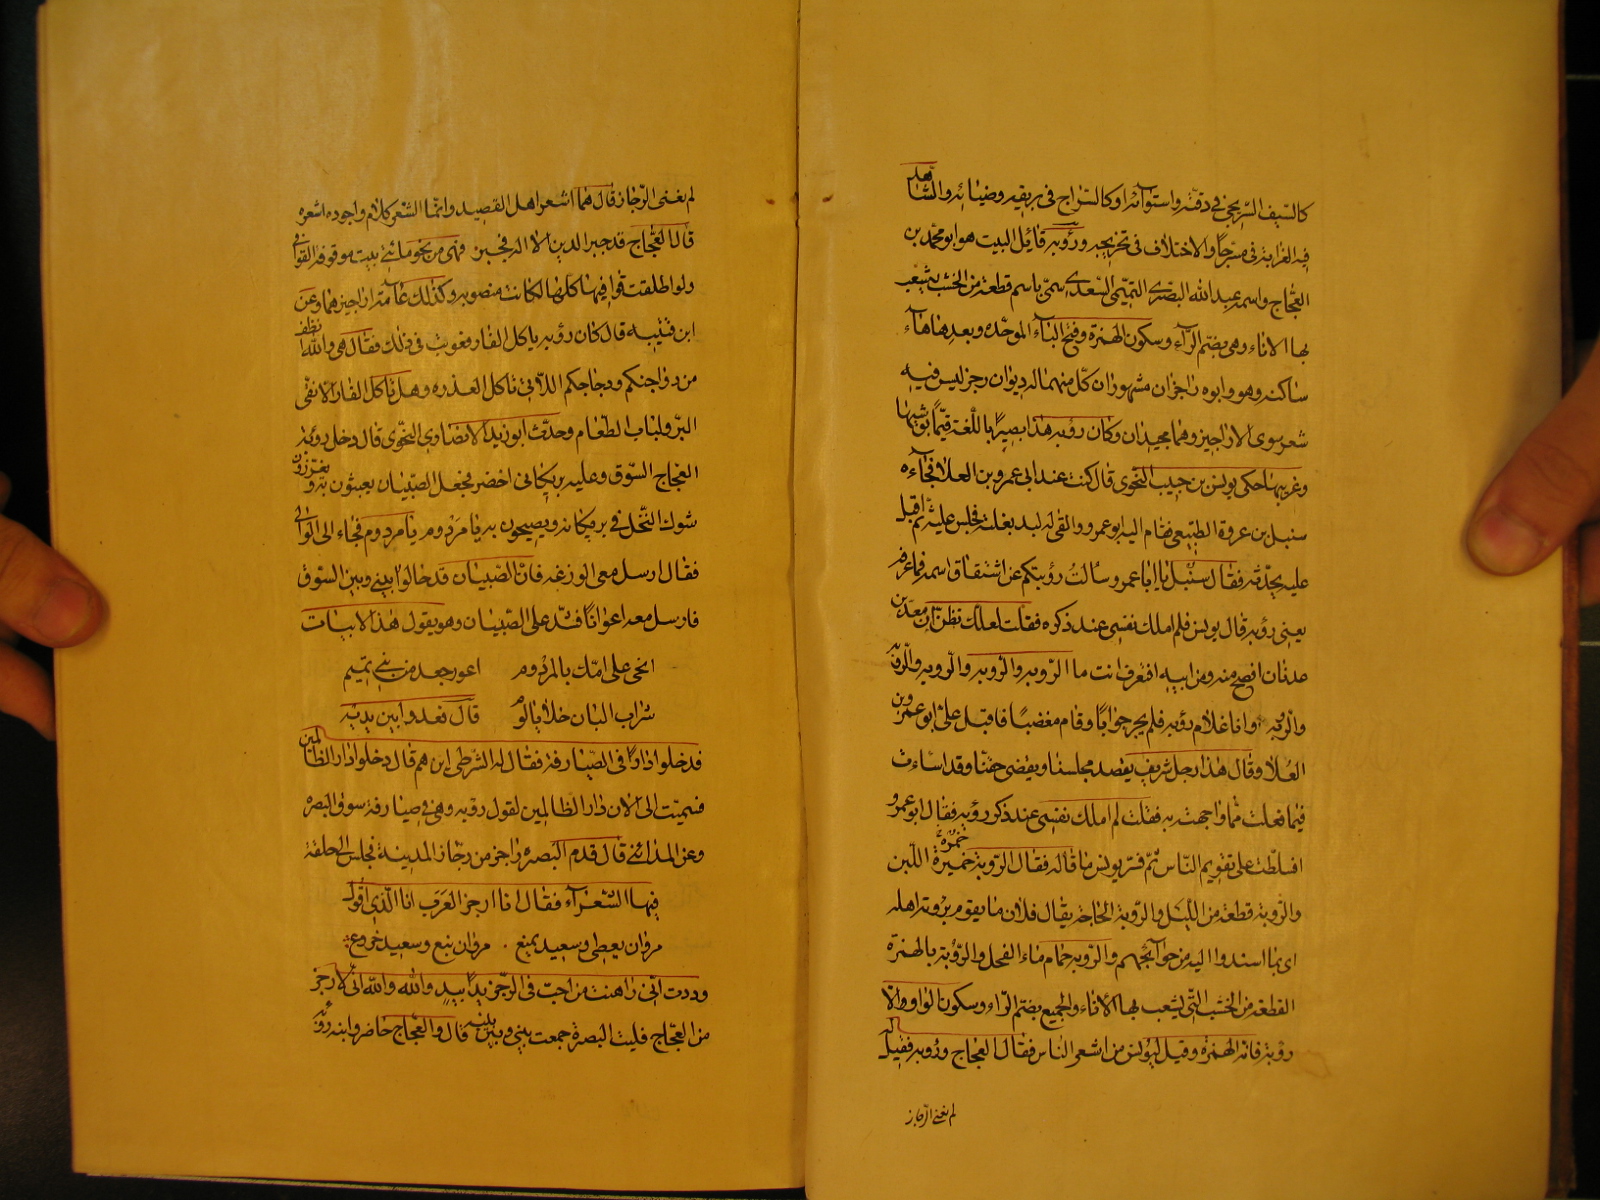 كالسّيف السّريجيّ في دقّته واستوآئه او كالسّراج في بريقه وضيائه والشّاهد
فيه الغرابة في مسرّجا والاختلاف في تخريجه ورؤبة قائل البيت هو ابو محمّد بن
العجّاج واسمه عبد الله البصري التميمي السّعدي سمّي باسم قطعة من الخشب يشعب
بها الاناء وهي بضم الرآء وسكون الهمزة وفتح البآء الموحّده وبعدها هآء
ساكنه وهو وابوه راجزان مشهوران كلّ منهما له ديوان رجز ليس فيه
شعر سوى الاراجيز وهما مجيدان وكان رؤبه هذا بصيرًا باللّغة قيّمًا بوشيها
وغريبها حكى يونس بن حبيب النّحوي قال كنت عند ابي عمرو بن العلا فجآءه
سنبل بن عروة الضّبيعي فقام اليه ابو عمرو والقى له لبد بغلته فجلس عليه ثم اقبل
عليه يحدّثه فقال سنبل يا ابا عمرو سألت رؤبتكم عن اشتقاق اسمه فما عرفه
يعني رؤبه قال يونس فلم املك نفسي عند ذكره فقلت لعلّك تظنّ انّ معدّ بن
عدنان افصح منه ومن ابيه افتعرف انت ما الرّوبه والرّوبه والرّوبه والرّوبه
والرؤبه وانا غلام رؤبه فلم يحر جوابًا وقام مغضبًا فاقبل عليّ ابو عمرو بن
العُلا وقال هذا رجل شريف يقصد مجلسنا ويقضي حقنا وقد اساءت
فيما فعلت ممّا واجهته به فقلت لم املك نفسي عند ذكر رؤبه فقال ابو عمرو
افسلّطت على تقويم النّاس ثمّ فسّر يونس ما قاله فقال الرّوبة خميرة اللّبن
خمرة
والرّوبة قطعة من اللّيل والرّوبة الحاجة يقال فلان ما يقوم بروبة اهله
اي بما اسندوا اليه من حوآئجهم والرّوبه جمام ماء الفحل والرّؤبة بالهمزة
القطعة من الخشب الّتي يشعب بها الاناء والجميع بضمّ الرّاء وسكون الواو والّا
رؤبة فانّه بالهمزه وقيل ليونس من اشعر النّاس فقال العجاج ورؤبه فقيل له
لم نعني الرّجاز
لم نعني الرّجاز قال هما اشعر اهل القصيد وانّما الشّعر كلام واجوده اشعره
قال العجّاج قد جبر الدين الاله فجبر فهي من نحو مائتي بيت موقوفة القوافي
ولو اطلقت قوافيها كلّها لكانت منصوبه وكذلك عآمّة اراجيزهما وعن
ابن قتيبه قال كان رؤبه ياكل الفار فعوتب في ذلك فقال هي والله انظف
من دواجنكم ودجاجكم اللّاتي تاكل العذره وهل تاكل الفار الا نقّي
البرّ ولباب الطّعام وحدّث ابو زيد الانصاري النّحوي قال دخل رؤبة بن
العجاج السّوق وعليه برنكاني اخضر فجعل الصّبيان يعبثون به ويغرزون
شوك النّخل في برنكانه ويصيحون به يا مَردوم يا مردوم فجاء الى الوالي
فقال ارسل معي الوزغه فانّ الصّبيان قد حالوا بيني وبين السّوق
فارسل معه اعوانًا فشد على الصّبيان وهو يقول هذا الابيات
انحى على امّك بالمردوم اعور جعد من بني تميم
شراب البان خلايا لوم قال فعدوا بين يديه
فدخلوا دارًا في الصّيارفة فقال له الشّرطي اين هم قال دخلوا دار الظّالمين
فسمّيت الى الان دار الظّالمين لقول رؤبه وهي في صيارفة سوق البصره
وعن المدائني قال قدم البصره راجز من رجّاز المدينة فجلس الى حلقة
فيها الشّعرآء فقال انا ارجز العرب انا الّذي اقول
مروان يعطي وسعيد يمنع مروان نبع وسعيد خروع
وددت انّي راهنت من احبّ في الرّجز يدًا بيدٍ والله والله انّي لارجز
من العجّاج فليت البصرة جمعت بيني وبين بينه قال والعجّاج حاضر وابنه رؤبة